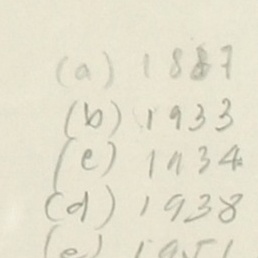 (a) 1887
(b) 1933
(c) 1934
(d) 1938
(e) 1951